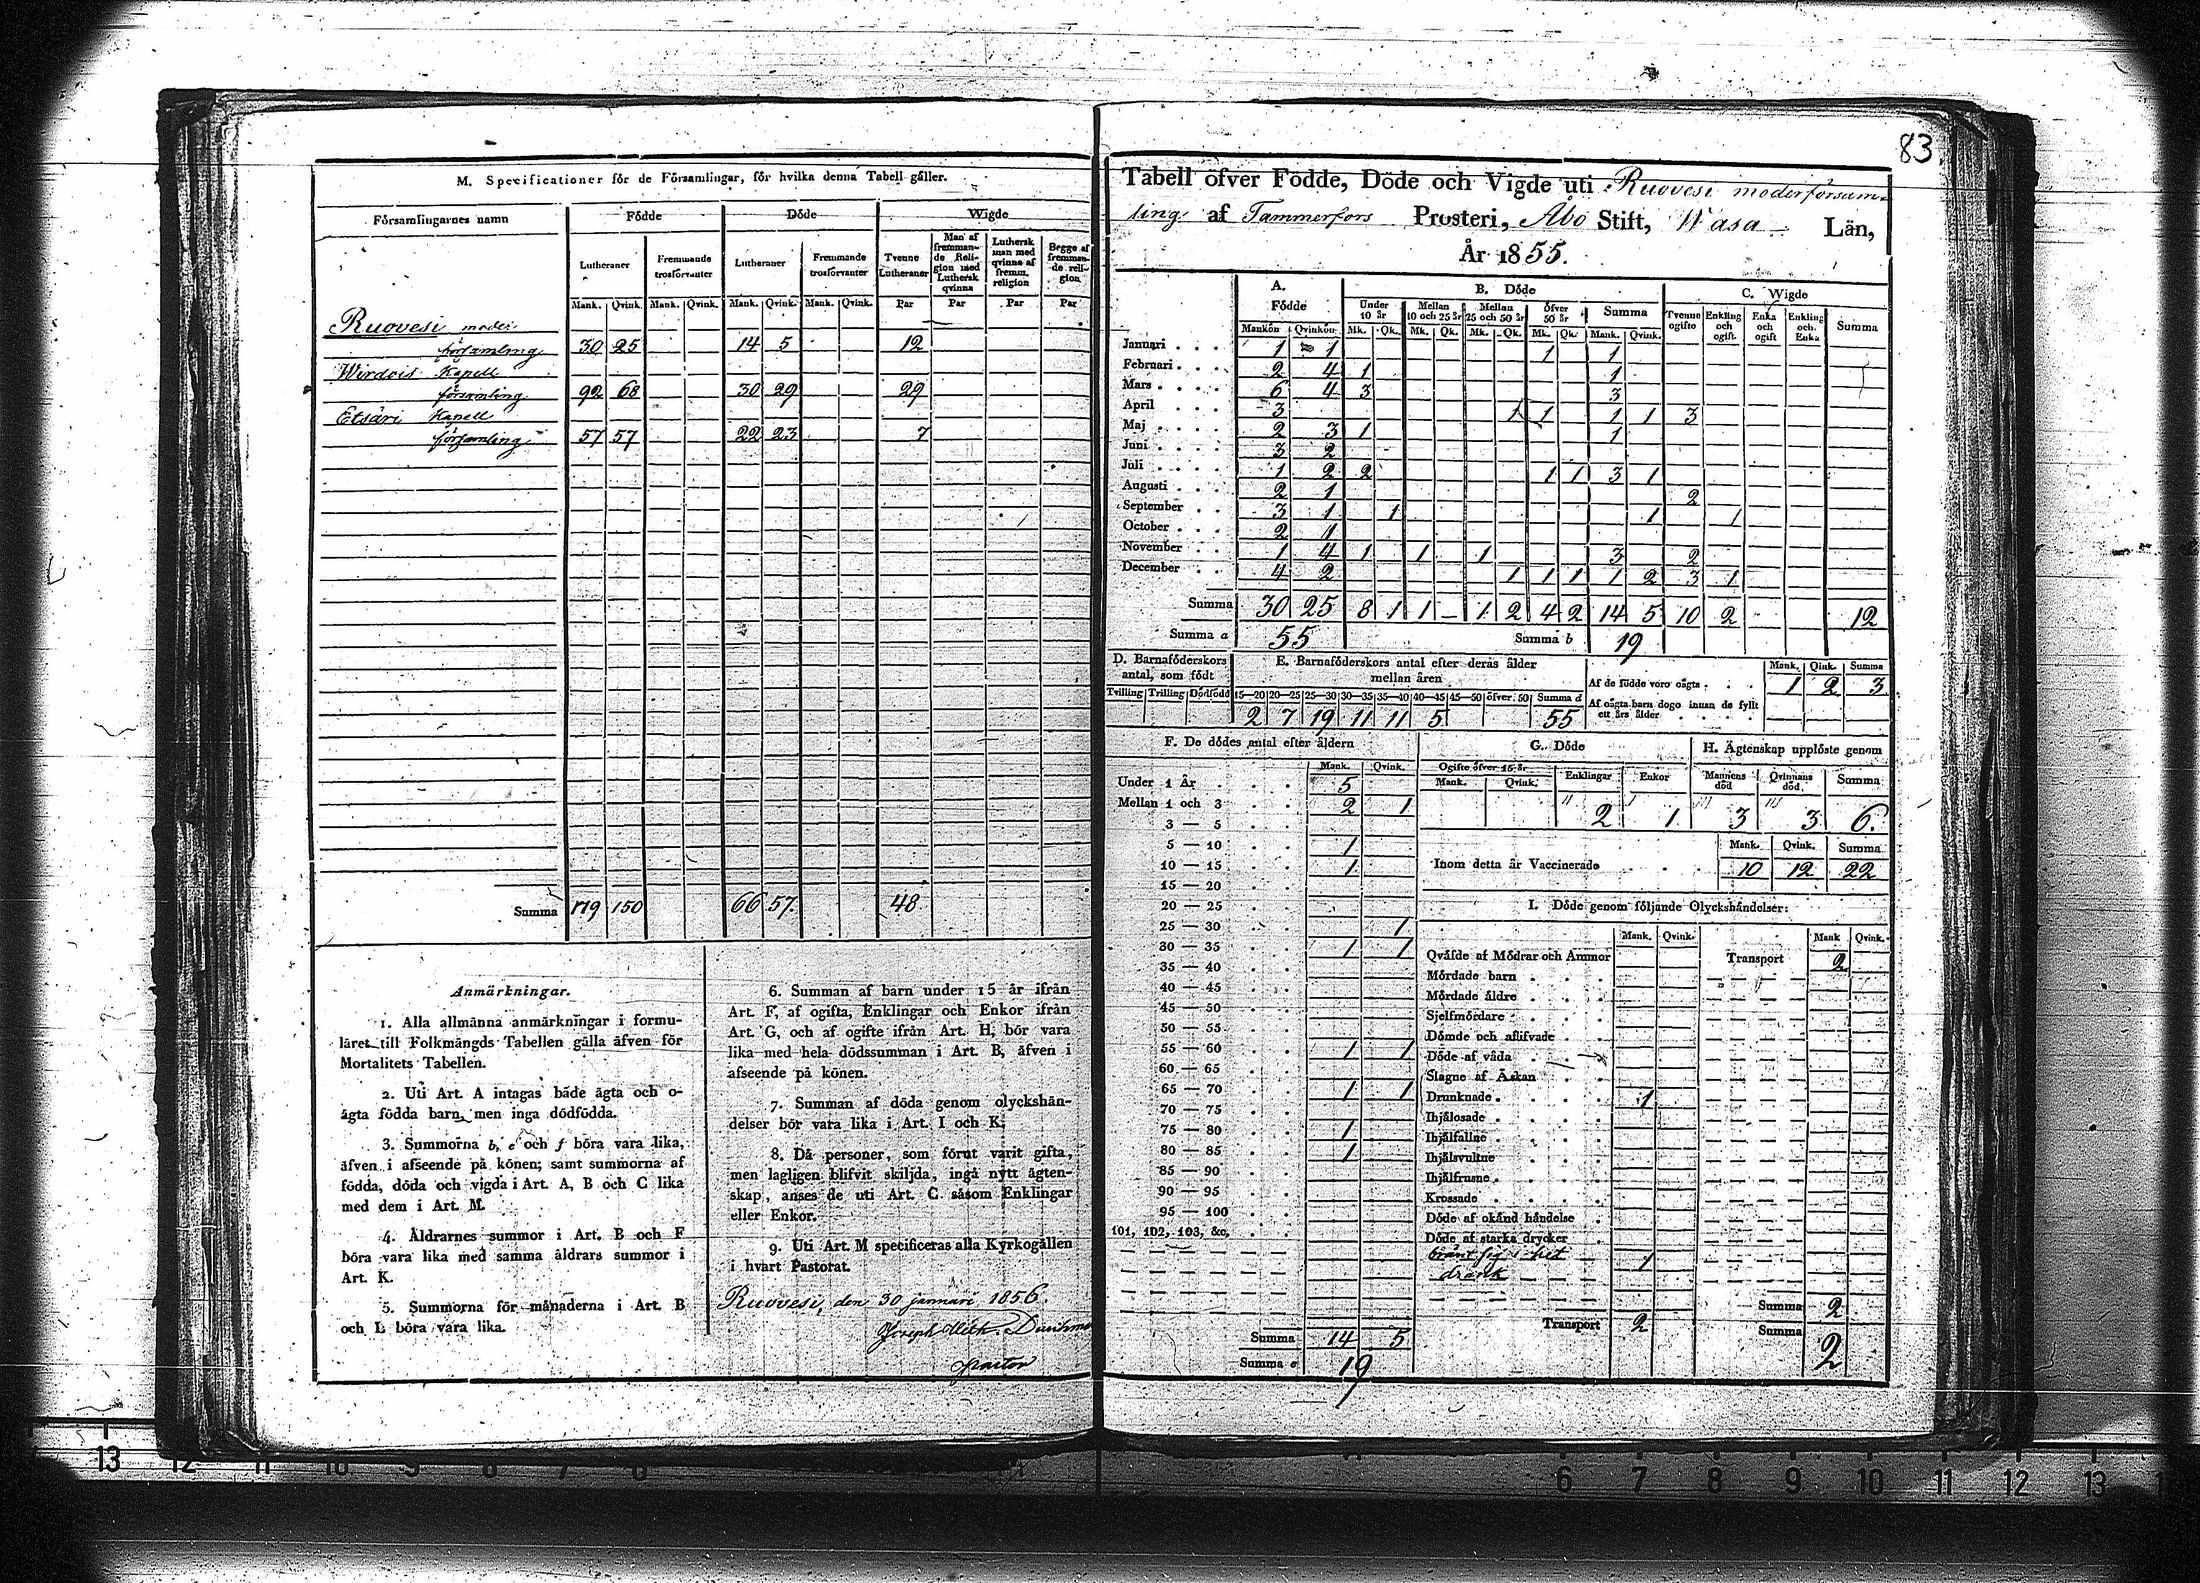 83
M. Specificationer för de Församlingar, för hvilka denna Tabell gäller.
Församlingarnes namn | Födde | Döde | Wigde
Lutheraner | Fremmande trosförvanter | Lutheraner | Fremmande trosförvanter | Tvenne Lutheraner | Man af fremmande Religion med Luthersk qvinna | Luthersk man med qvinna af fremm. religion | Begge af fremmande religion
Mank. | Qvink. | Mank. | Qvink. | Mank. | Qvink. | Mank. | Qvink. | Par | Par | Par | Par
Ruovesi moder
församling 30 25 14 5 12
Wirdois Kapell
församling 92 68 30 29 29
Etsäri Kapell
församling 57 57 22 23 7
Summa 179 150 66 57. 48
Anmärkningar.
1. Alla allmänna anmärkningar i formu-
läret till Folkmängds Tabellen gälla äfven för
Mortalitets Tabellen.
2. Uti Art. A intagas både ägta och o-
ägta födda barn, men inga dödfödda.
3. Summorna b, e och f böra vara lika,
äfven i afseende på könen; samt summorna af
födda, döda och vigda i Art. A, B och C lika
med dem i Art. M.
4. Åldrarnes summor i Art. B och F
böra vara lika med samma åldrars summor i
Art. K.
5. Summorna för månaderna i Art. B
och L böra vara lika.
6. Summan af barn under 15 år ifrån
Art. F, af ogifta, Enklingar och Enkor ifrån
Art. G, och af ogifte ifrån Art. H, bör vara
lika med hela dödssumman i Art. B, äfven i
afseende på könen.
7. Summan af döda genom olyckshän-
delser bör vara lika i Art. I och K.
8. Då personer, som förut varit gifta,
men lagligen blifvit skiljda, ingå nytt ägten-
skap, anses de uti Art. C. såsom Enklingar
eller Enkor.
9. Uti Art. M specificeras alla Kyrkogällen
i hvart Pastorat.
Ruovesi, den 30 januari 1856.
Joseph Wilh.
pastor
Tabell öfver Födde, Döde och Vigde uti Ruovesi moderförsam-
ling af Tammerfors Prosteri, Åbo Stift, Wasa Län,
År 1855.
A. Födde | B. Döde | C. Wigde
Under 10 år | Mellan 10 och 25 år | Mellan 25 och 50 år | Öfver 50 år | Summa | Tvenne ogifte | Enkling och ogift. | Enka och ogift | Enkling och Enka | Summa
Mankön | Qvinkön | Mk. | Qk. | Mk. | Qk. | Mk. | Qk. | Mk. | Qk. | Mank. | Qvink.
Januari 1 1 1 1
Februari 2 4 1 1
Mars 6 4 3 3
April 3 1 1 1 1 3
Maj 2 3 1 1
Juni 3 2
Juli 1 2 2 1 1 3 1
Augusti 2 1 2
September 3 1 1 1 1
October 2 1
November 1 4 1 1 1 3 2
December 4 2 1 1 1 1 2 3 1
Summa 30 25 8 1 1 – 1 2 4 2 14 5 10 2 12
Summa a 55 Summa b 19
D. Barnaföderskors antal, som födt | E. Barnaföderskors antal efter deras ålder mellan åren | Mank. | Qink. | Summa
Tvilling | Trilling | Dödfödd | 15—20 | 20—25 | 25—30 | 30—35 | 35—40 | 40—45 | 45—50 | öfver 50 | Summa d
2 7 19 11 11 5 55
Af de födde voro oägta 1 2 3
Af oägta barn dogo innan de fyllt ett års ålder
F. De dödes antal efter åldern
Mank. | Qvink.
Under 1 År 5
Mellan 1 och 3 2 1
3 — 5
5 — 10 1
10 — 15 1
15 — 20
20 — 25
25 — 30 1
30 — 35 1 1
35 — 40
40 — 45
45 — 50
50 — 55
55 — 60 1 1
60 — 65
65 — 70 1 1
70 — 75
75 — 80 1
80 — 85 1
85 — 90
90 — 95
95 — 100
101, 102, 103, &c.
Summa 14 5
Summa e 19
G. Döde | H. Ägtenskap upplöste genom
Ogifte öfver 15 år | Enklingar | Enkor | Mannens död | Qvinnans död. | Summa
Mank. | Qvink.
2 1 3 3 6.
Mank. | Qvink. | Summa
Inom detta år Vaccinerade 10 12 22
I. Döde genom följande Olyckshändelser:
Mank. | Qvink. | Mank | Qvink.
Qväfde af Mödrar och Ammor | Transport 2
Mördade barn
Mördade äldre
Sjelfmördare
Dömde och aflifvade
Döde af våda
Slagne af Åskan
Drunknade 1
Ihjälosade
Ihjälfallne
Ihjälsvultne
Ihjälfrusne
Krossade
Döde af okänd händelse
Döde af starka drycker
bränt sig i het 1
drank
Summa 2
Transport 2 | Summa 2
13 12 11 10 9 8 7 6
6 7 8 9 10 11 12 13